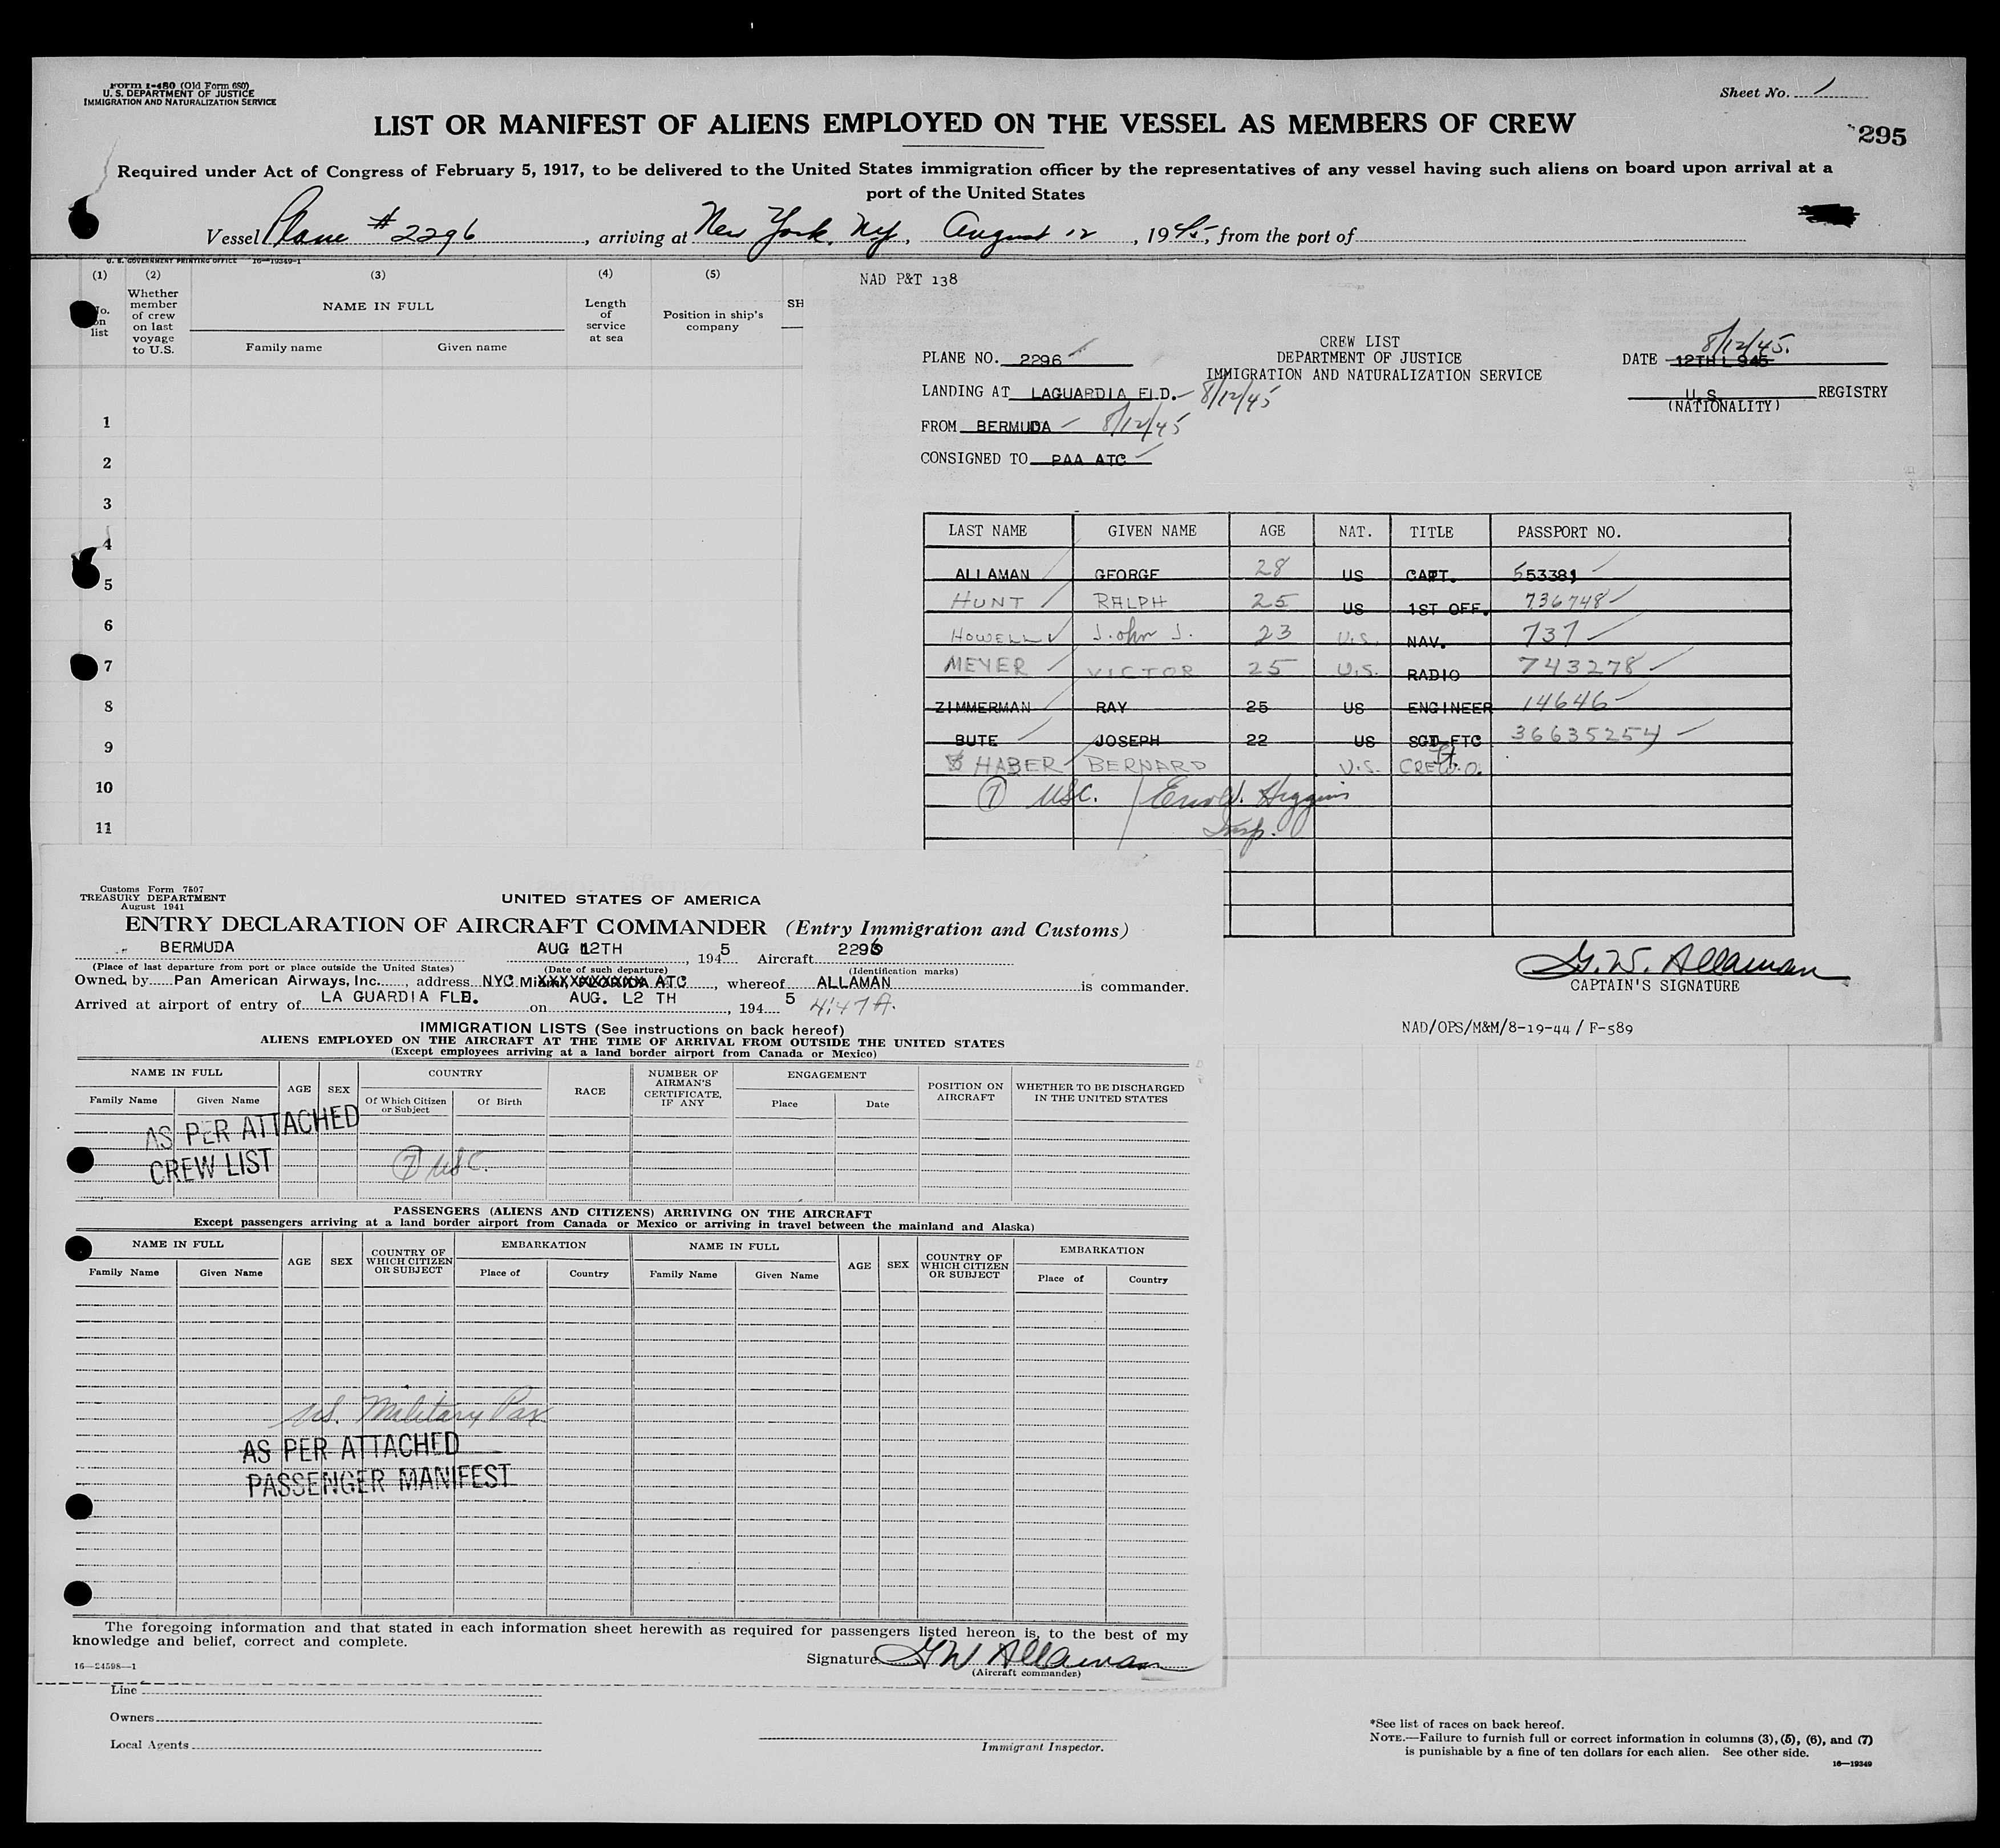 Form I-480 (Old Form 680)
U. S. DEPARTMENT OF JUSTICE
IMMIGRATION AND NATURALIZATION SERVICE
Sheet No. 1
LIST OR MANIFEST OF ALIENS EMPLOYED ON THE VESSEL AS MEMBERS OF CREW
295
Required under Act of Congress of February 5, 1917, to be delivered to the United States immigration officer by the representatives of any vessel having such aliens on board upon arrival at a
port of the United States
Vessel Plane # 2296, arriving at New York, NY., August 12, 1945, from the port of
U. S. GOVERNMENT PRINTING OFFICE 16—19349-1
(1) (2) (3) (4) (5)
No. on list
Whether member of crew on last voyage to U.S.
NAME IN FULL
Family name Given name
Length of service at sea
Position in ship's company
SH
1
2
3
4
5
6
7
8
9
10
11
NAD P&T 138
CREW LIST
DEPARTMENT OF JUSTICE
IMMIGRATION AND NATURALIZATION SERVICE
PLANE NO. 2296
DATE 12TH L 945 8/12/45.
LANDING AT LAGUARDIA FLD. 8/12/45
U.S. REGISTRY
(NATIONALITY)
FROM BERMUDA 8/12/45
CONSIGNED TO PAA ATC
LAST NAME GIVEN NAME AGE NAT. TITLE PASSPORT NO.
ALLAMAN GEORGE 28 US CAPT. 553381
HUNT RALPH 25 US 1ST OFF. 736748
HOWELL John J. 23 U.S. NAV. 737
MEYER VICTOR 25 U.S. RADIO 743278
ZIMMERMAN RAY 25 US ENGINEER 14646
BUTE JOSEPH 22 US SGT FTC 36635254
HABER BERNARD U.S. CREW.O.
7 USC. / W. Higgins
Insp.
G. W. Allaman
CAPTAIN'S SIGNATURE
NAD/OPS/M&M/8-19-44 / F-589
Customs Form 7507
TREASURY DEPARTMENT
August 1941
UNITED STATES OF AMERICA
ENTRY DECLARATION OF AIRCRAFT COMMANDER (Entry Immigration and Customs)
BERMUDA AUG 12TH, 1945 Aircraft 2296
(Place of last departure from port or place outside the United States) (Date of such departure) (Identification marks)
Owned by Pan American Airways, Inc., address NYC Miami, FLORIDA ATC, whereof ALLAMAN is commander.
Arrived at airport of entry of LA GUARDIA FLD. on AUG. L2 TH, 1945 4:47A.
IMMIGRATION LISTS (See instructions on back hereof)
ALIENS EMPLOYED ON THE AIRCRAFT AT THE TIME OF ARRIVAL FROM OUTSIDE THE UNITED STATES
(Except employees arriving at a land border airport from Canada or Mexico)
NAME IN FULL AGE SEX COUNTRY RACE NUMBER OF AIRMAN'S CERTIFICATE, IF ANY ENGAGEMENT POSITION ON AIRCRAFT WHETHER TO BE DISCHARGED IN THE UNITED STATES
Family Name Given Name Of Which Citizen or Subject Of Birth Place Date
AS PER ATTACHED
CREW LIST
7 USC.
PASSENGERS (ALIENS AND CITIZENS) ARRIVING ON THE AIRCRAFT
Except passengers arriving at a land border airport from Canada or Mexico or arriving in travel between the mainland and Alaska)
NAME IN FULL AGE SEX COUNTRY OF WHICH CITIZEN OR SUBJECT EMBARKATION NAME IN FULL AGE SEX COUNTRY OF WHICH CITIZEN OR SUBJECT EMBARKATION
Family Name Given Name Place of Country Family Name Given Name Place of Country
U.S. Military Pax
AS PER ATTACHED
PASSENGER MANIFEST
The foregoing information and that stated in each information sheet herewith as required for passengers listed hereon is, to the best of my
knowledge and belief, correct and complete.
Signature G W Allaman
(Aircraft commander)
16—24598—1
Line
Owners
Local Agents
Immigrant Inspector.
*See list of races on back hereof.
NOTE.—Failure to furnish full or correct information in columns (3), (5), (6), and (7)
is punishable by a fine of ten dollars for each alien. See other side.
16—19349